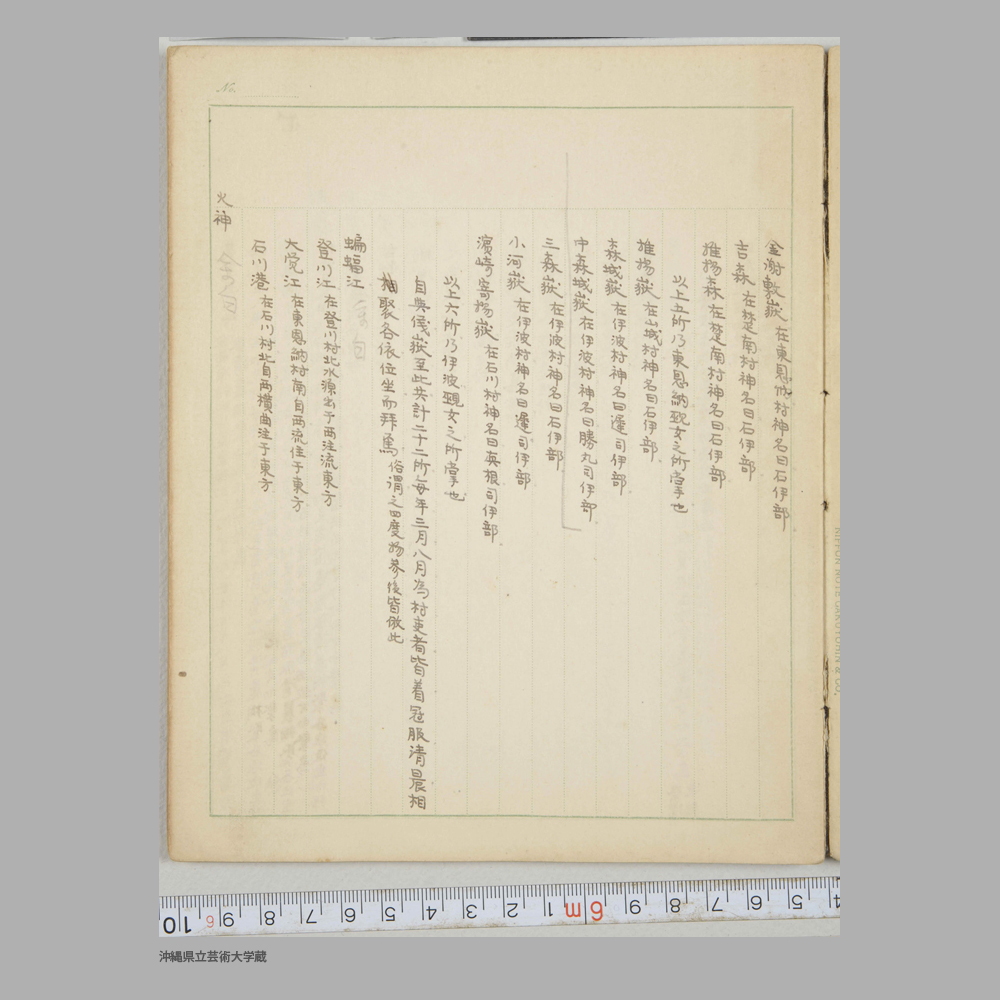 No.
金謝敷嶽 在東恩納村神名曰石伊部
吉森 在楚南村神名曰石伊部
推揚森 在楚南村神名曰石伊部
以上五所乃東恩納覡女之所掌也
推揚嶽 在山城村神名曰石伊部
森城嶽 在伊波村神名曰邊司伊部
中森城嶽 在伊波村神名曰勝丸司伊部
三森嶽 在伊波村神名曰石伊部
小河嶽 在伊波村神名曰邊司伊部
濱崎寄揚嶽 在石川村神名曰英根司伊部
以上六所乃伊波覡女之所掌也
自與儀嶽至此共計二十二所每年三月八月為村吏者皆着冠服清晨相
聚各依位坐而拜焉 俗謂之四度物參後皆倣此
蝙蝠江
登川江 在登川村北水源出于西注流東方
大覺江 在東恩納村南自西流注于東方
石川港 在石川村北自西橫曲注于東方
火神
沖縄県立芸術大学蔵